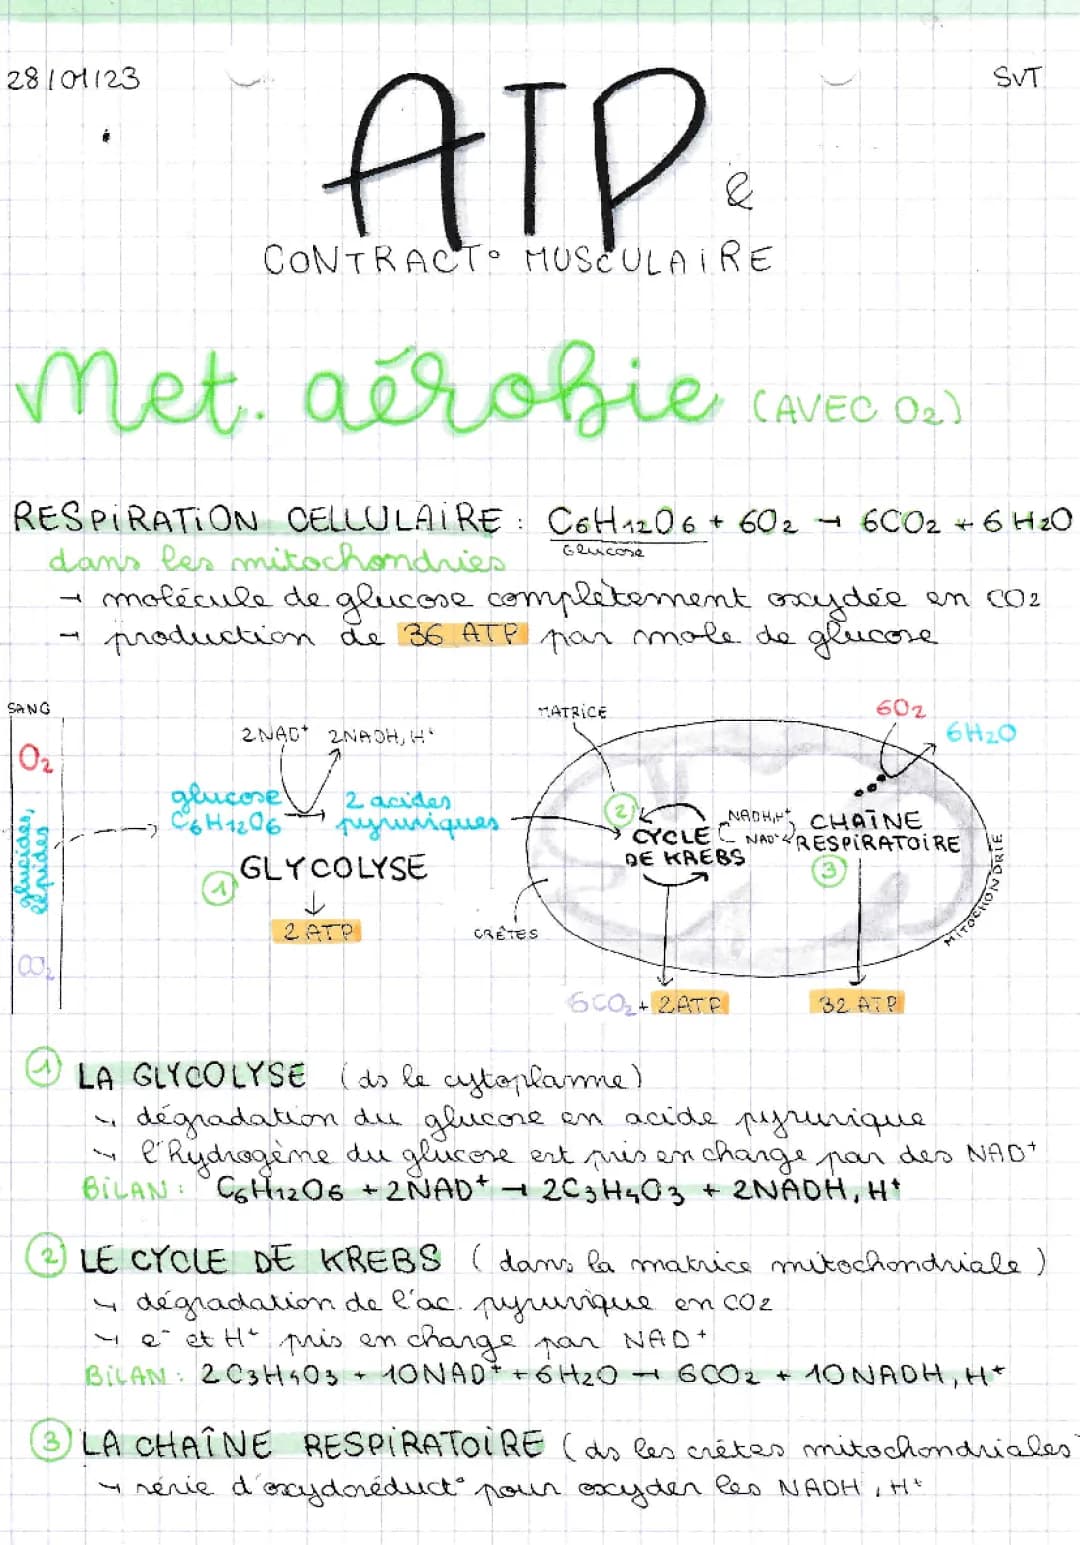 28/01/23
SVT
ATP &
CONTRACT° MUSCULAIRE
Met. aérobie (AVEC O2)
RESPIRATION CELLULAIRE : C6H12O6 + 6O2 → 6CO2 + 6H2O
Glucose
dans les mitochondries
→ molécule de glucose complètement oxydée en CO2
→ production de 36 ATP par mole de glucose
SANG
O2
glucides, lipides
CO2
2NAD+ 2NADH, H+
glucose → 2 acides
C6H12O6 pyruviques
① GLYCOLYSE
2 ATP
MATRICE
6O2
6H2O
②
CYCLE
DE KREBS
NADH,H+
NAD+
CHAÎNE
RESPIRATOIRE
③
MITOCHONDRIE
CRÊTES
6CO2 + 2ATP
32 ATP
① LA GLYCOLYSE (ds le cytoplasme)
↳ dégradation du glucose en acide pyruvique
↳ l'hydrogène du glucose est pris en charge par des NAD+
BILAN : C6H12O6 + 2NAD+ → 2C3H4O3 + 2NADH, H+
② LE CYCLE DE KREBS (dans la matrice mitochondriale)
↳ dégradation de l'ac. pyruvique en CO2
↳ e- et H+ pris en charge par NAD+
BILAN : 2C3H4O3 + 10NAD+ + 6H2O → 6CO2 + 10NADH, H+
③ LA CHAÎNE RESPIRATOIRE (ds les crêtes mitochondriales
↳ série d'oxydoréduct° pour oxyder les NADH, H+